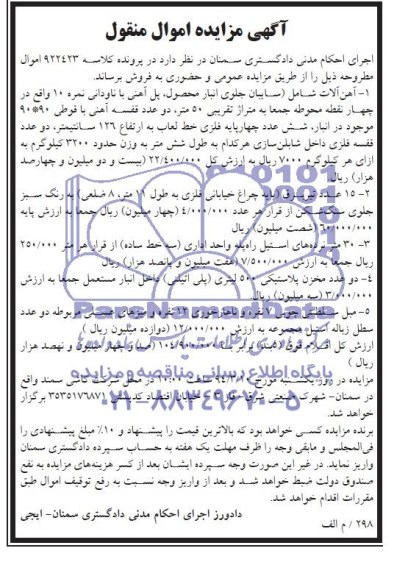 آگهی مزایده اموال منقول
اجرای احکام مدنی دادگستری سمنان در نظر دارد در پرونده کلاسه ۹۲۲۴۲۳ اموال
مطروحه ذیل را از طریق مزایده عمومی و حضوری به فروش برساند.
۱- آهن‌آلات شامل (سایبان جلوی انبار محصول، پل آهنی با ناودانی نمره ۱۰ واقع در
چهار نقطه محوطه جمعا به متراژ تقریبی ۵۰ متر، دو عدد قفسه آهنی با قوطی ۹۰*۹۰
موجود در انبار، شش عدد چهارپایه فلزی خط لعاب به ارتفاع ۱۲۶ سانتیمتر، دو عدد
قفسه فلزی داخل شابلن‌سازی هرکدام به طول شش متر به وزن حدود ۳۲۰۰ کیلوگرم به
ازای هر کیلوگرم ۷۰۰۰ ریال به ارزش کل ۲۲/۴۰۰/۰۰۰ (بیست و دو میلیون و چهارصد
هزار) ریال
۲- ۱۵ عدد تیر برق (پایه چراغ خیابانی فلزی به طول ۱۱ متر، ۸ ضلعی) به رنگ سبز
جلوی سنگ‌شکن از قرار هر عدد ۴/۰۰۰/۰۰۰ (چهار میلیون) ریال جمعا به ارزش پایه
۶۰/۰۰۰/۰۰۰ (شصت میلیون) ریال
۳- ۳۰ متر نرده‌های استیل راه‌پله واحد اداری (سه خط ساده) از قرار هر متر ۲۵۰/۰۰۰
ریال جمعا به ارزش ۷/۵۰۰/۰۰۰ (هفت میلیون و پانصد هزار) ریال
۴- دو عدد مخزن پلاستیکی ۵۰۰ لیتری (پلی اتیلنی) داخل انبار مستعمل جمعا به ارزش
۳/۰۰۰/۰۰۰ (سه میلیون) ریال
۵- مبل سلطنتی چوبی ۷ نفره و ناهارخوری ۱۲ نفره و میزهای عسلی مربوطه دو عدد
سطل زباله استیل مجموعه به ارزش ۱۲/۰۰۰/۰۰۰ (دوازده میلیون ریال)
ارزش کل اقلام فوق برابر با ۱۰۴/۹۰۰/۰۰۰ (صد و چهار میلیون و نهصد هزار
ریال)
مزایده در روز یکشنبه مورخ ساعت ۱۰:۰۰ در محل شرکت کاشی سمند واقع
در سمنان- شهرک صنعتی شرق- فاز ۳ - خیابان اقتصاد کدپستی ۳۵۳۵۱۷۶۸۷۱ برگزار
خواهد شد.
برنده مزایده کسی خواهد بود که بالاترین قیمت را پیشنهاد و ۱۰٪ مبلغ پیشنهادی را
فی‌المجلس و مابقی وجه را ظرف مهلت یک هفته به حساب سپرده دادگستری سمنان
واریز نماید. در غیر این صورت وجه سپرده ایشان بعد از کسر هزینه‌های مزایده به نفع
صندوق دولت ضبط خواهد شد و بعد از واریز وجه نسبت به رفع توقیف اموال طبق
مقررات اقدام خواهد شد.
دادورز اجرای احکام مدنی دادگستری سمنان- ایجی
۲۹۸ / م الف
پایگاه اطلاع رسانی مناقصه و مزایده
۰۲۱-۸۸۳۴۹۶۷۰-۵